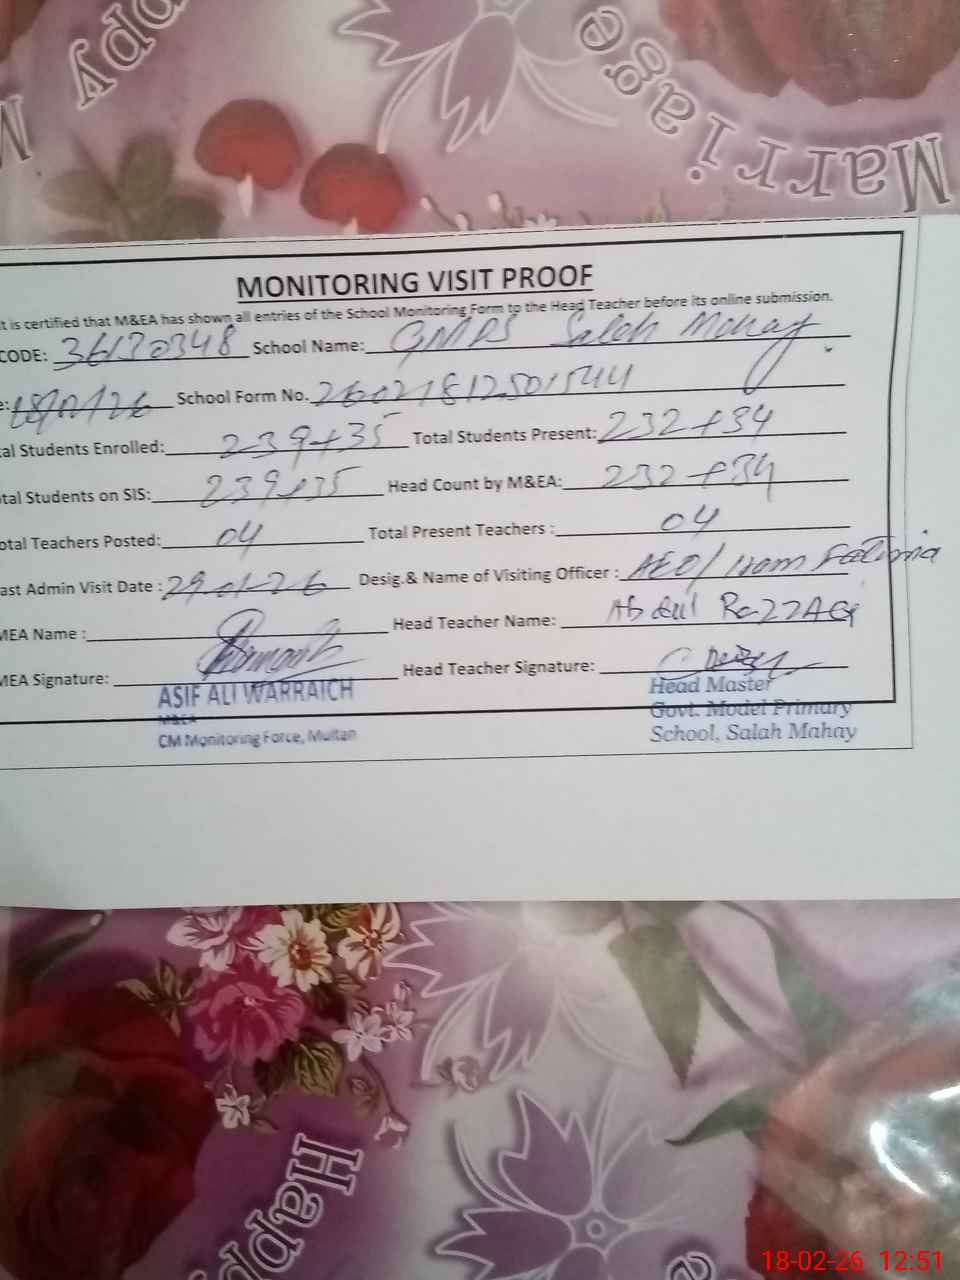 Happy
Marriage
M
MONITORING VISIT PROOF
t is certified that M&EA has shown all entries of the School Monitoring Form to the Head Teacher before its online submission.
CODE: 36120348 School Name: GMPS Salah Mahay
e: 18/02/26 School Form No. 26021812501544
al Students Enrolled: 239+35 Total Students Present: 232+34
tal Students on SIS: 239+35 Head Count by M&EA: 232+34
otal Teachers Posted: 04 Total Present Teachers : 04
ast Admin Visit Date : 29-01-26 Desig.& Name of Visiting Officer : AEO/ Iram Fatima
MEA Name : Head Teacher Name: Abdul RazzAQ
MEA Signature: Head Teacher Signature:
ASIF ALI WARRAICH
M&EA
CM Monitoring Force, Multan
Head Master
Govt. Model Primary
School, Salah Mahay
Happy
e
18-02-26 12:51